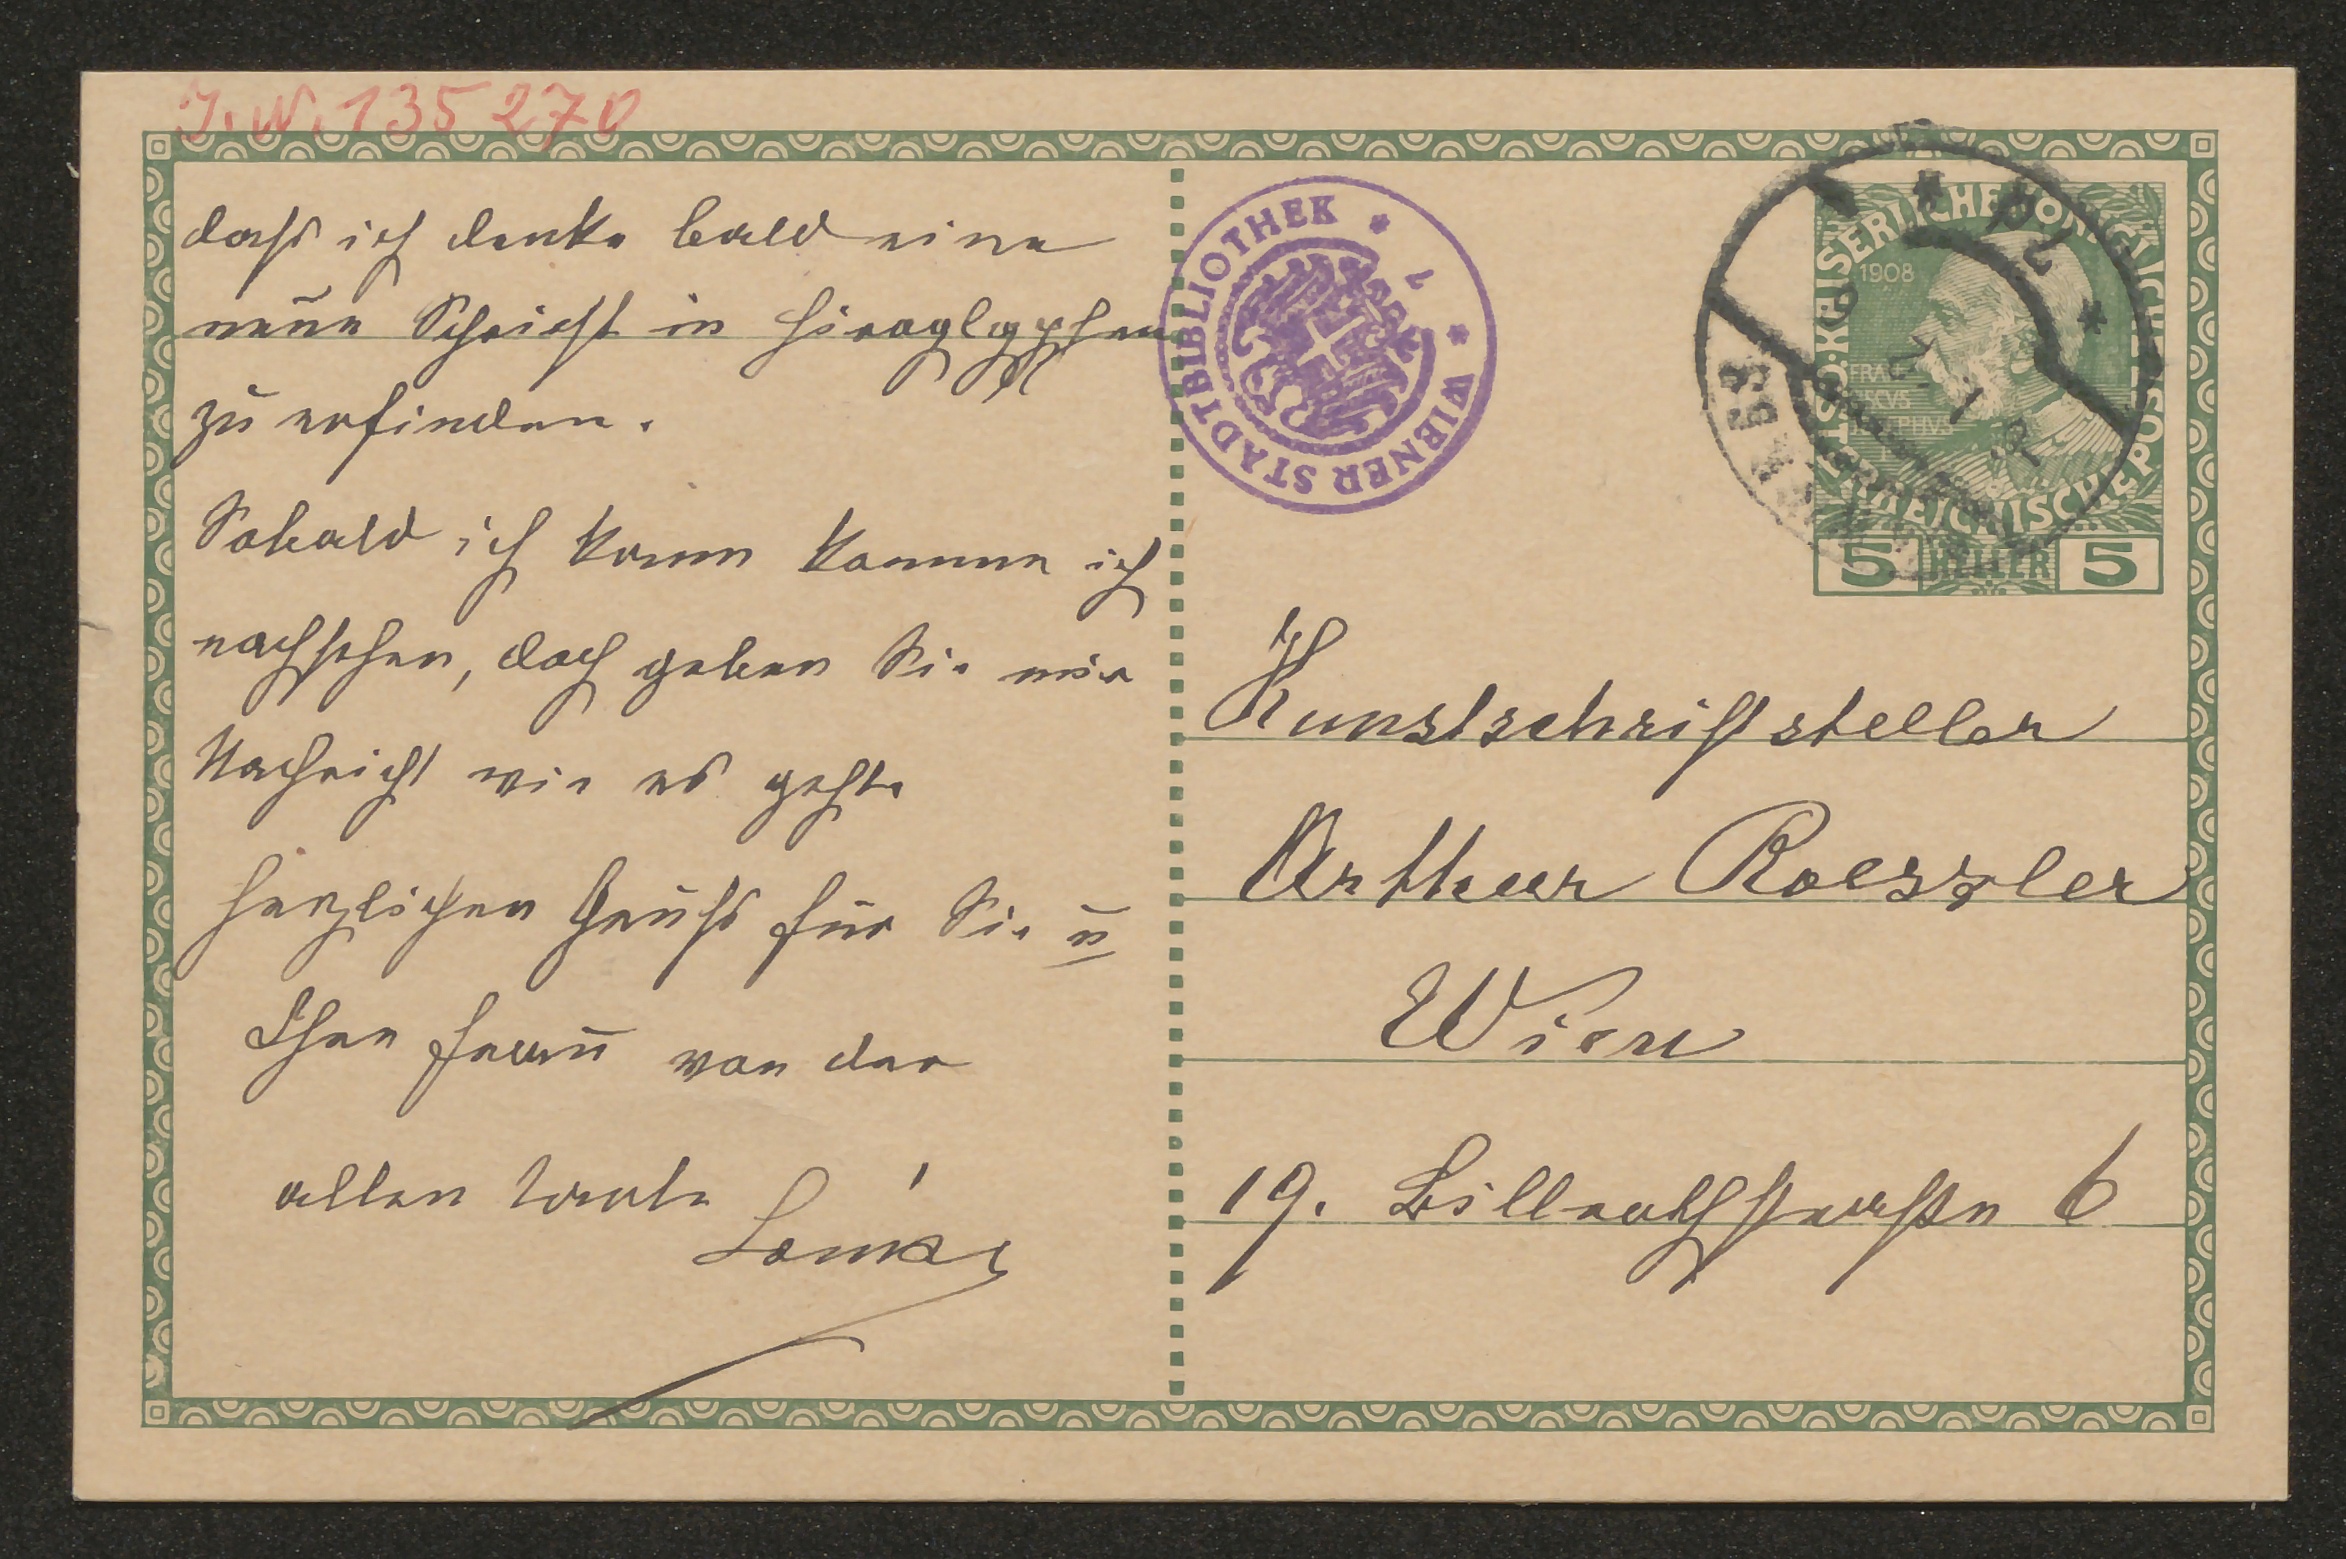 J. N. 135270
daß ich denke bald eine
neue Schrift in Hieroglyphen
zu erfinden.
Sobald ich kann komme ich
nachsehen, doch geben Sie mir
Nachricht wie es geht.
herzlichen Gruß für Sie u
Ihre Frau von der
alten
WIENER STADTBIBLIOTHEK
KAISERLICHE KÖNIGLICHE
ÖSTERREICHISCHE POST
1908
5 HELLER 5
Kunstschriftsteller
Arthur Roessler
Wien
19. Billrothstraße 6